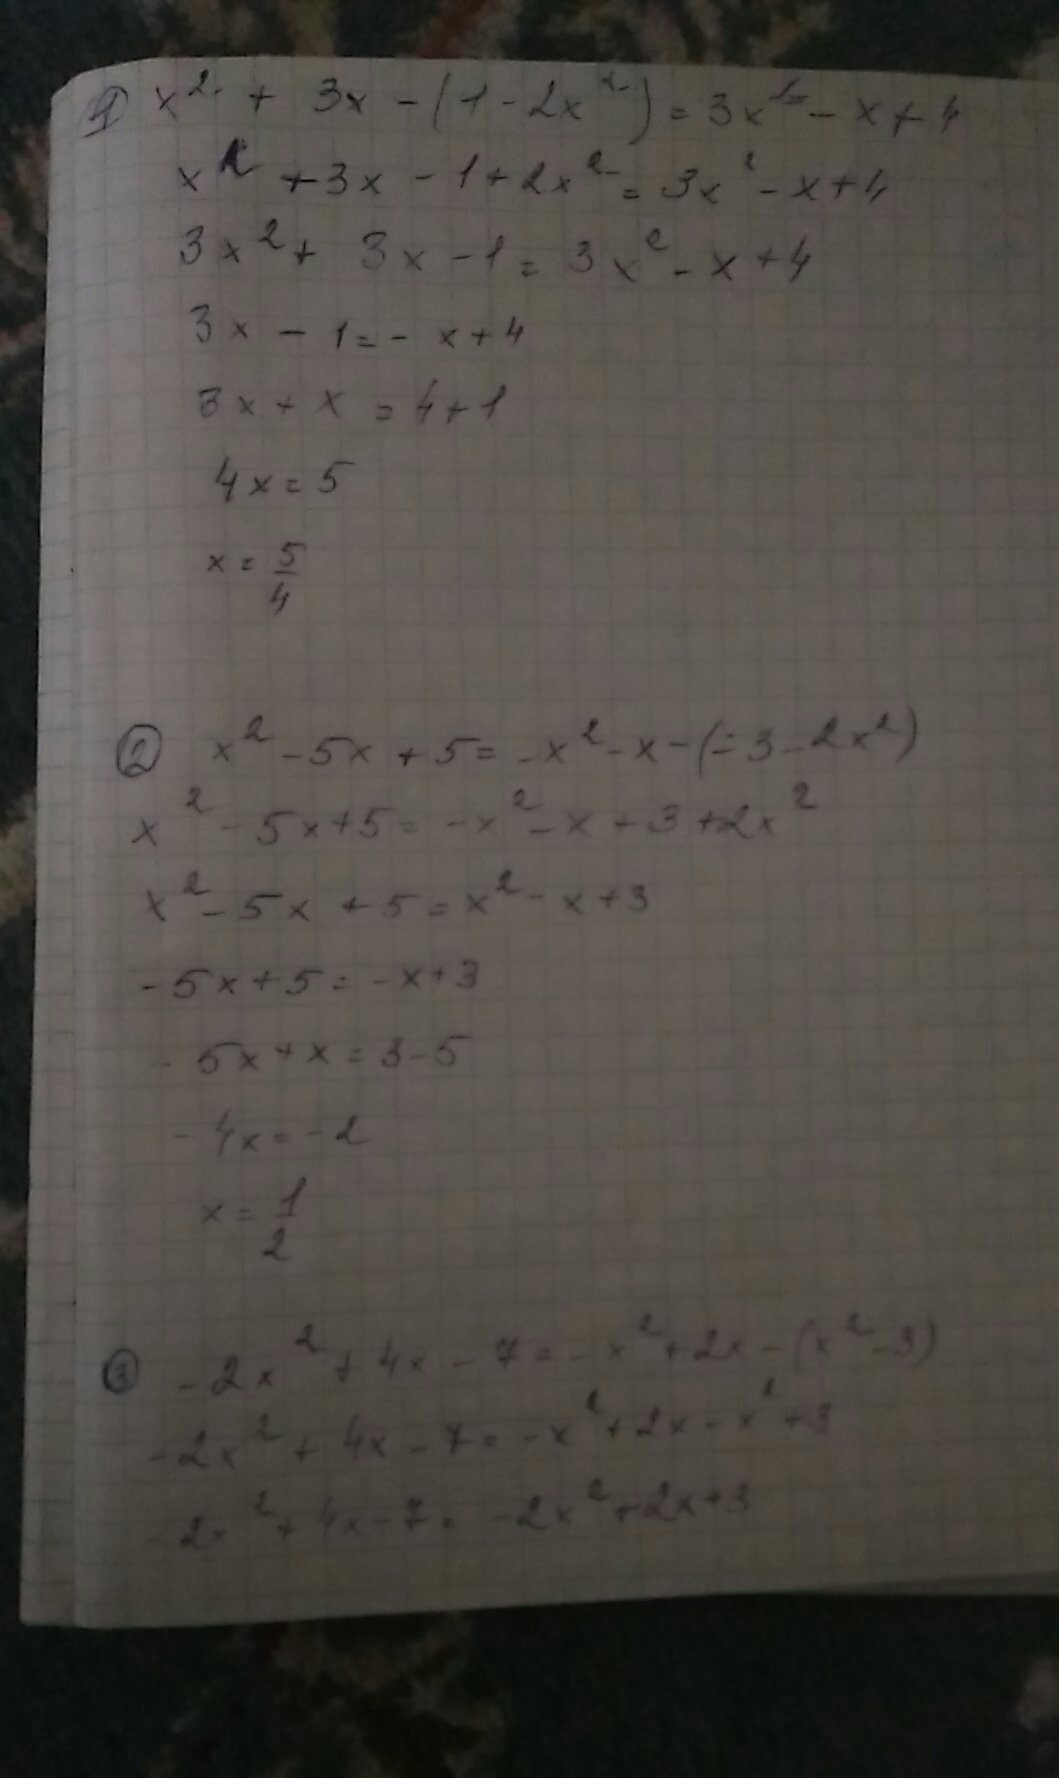 ① x² + 3x - (1 - 2x²) = 3x² - x + 4
x² + 3x - 1 + 2x² = 3x² - x + 4
3x² + 3x - 1 = 3x² - x + 4
3x - 1 = - x + 4
3x + x = 4 + 1
4x = 5
x = 5/4
② x² - 5x + 5 = -x² - x - (-3 - 2x²)
x² - 5x + 5 = -x² - x + 3 + 2x²
x² - 5x + 5 = x² - x + 3
-5x + 5 = -x + 3
-5x + x = 3 - 5
-4x = -2
x = 1/2
③ -2x² + 4x - 7 = -x² + 2x - (x² - 3)
-2x² + 4x - 7 = -x² + 2x - x² + 3
-2x² + 4x - 7 = -2x² + 2x + 3